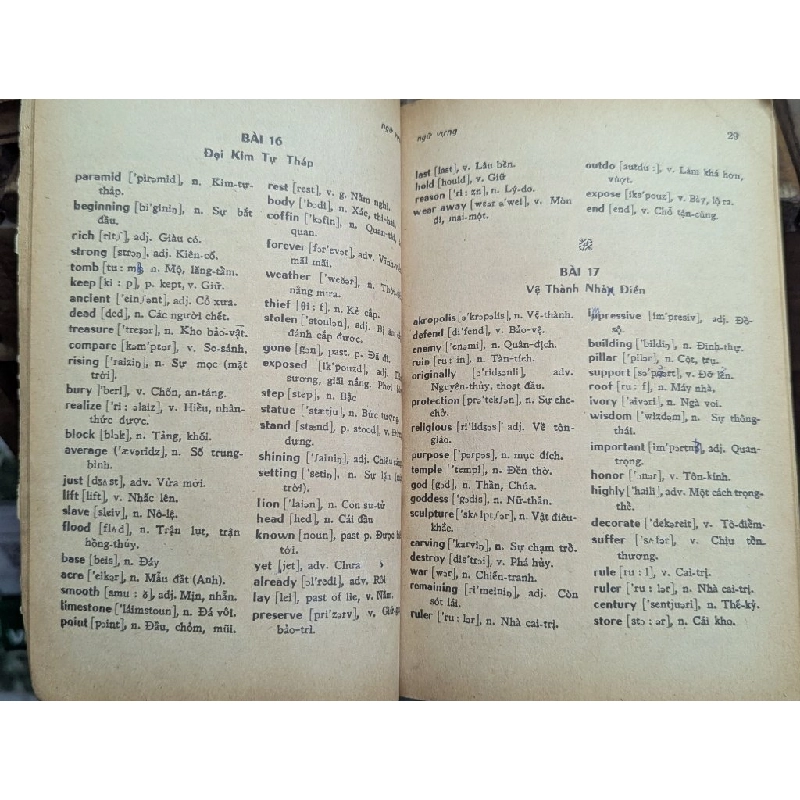 ngữ vựng
BÀI 16
Đại Kim Tự Tháp
paramid ['pirəmid], n. Kim-tự-
tháp.
beginning [bi'giniŋ], n. Sự bắt
đầu.
rich [ritʃ], adj. Giàu có.
strong [strɔŋ], adj. Kiên-cố.
tomb [tu: m], n. Mộ, lăng-tẩm.
keep [ki : p], p. kept, v. Giữ.
ancient ['einʃənt], adj. Cổ xưa.
dead [ded], n. Các người chết.
treasure ['treʒər], n. Kho báo-vật.
compare [kəm'peər], v. So-sánh.
rising ['raiziŋ], n. Sự mọc (mặt
trời).
bury ['beri], v. Chôn, an-táng.
realize ['ri : əlaiz], v. Hiểu, nhân-
thức được.
block [blɔk], n. Tảng, khối.
average ['ævəridʒ], n. Số trung-
bình.
just [dʒʌst], adv. Vừa mới.
lift [lift], v. Nhắc lên.
slave [sleiv], n. Nô-lệ.
flood [flʌd], n. Trận lụt, trận
hồng-thủy.
base [beis], n. Đáy
acre ['eikər], n. Mẫu đất (Anh).
smooth [smu : ð], adj. Mịn, nhẵn.
limestone ['laimstoun], n. Đá vôi.
point [pɔint], n. Đầu, chỏm, mũi.
rest [rest], v. g. Nằm nghỉ.
body ['bɔdi], n. Xác,
coffin ['kɔfin], n.
quan.
forever [fər'evər], adv.
mãi mãi.
weather ['weðər], n.
nắng mưa.
thief [θi : f], n. Kẻ cắp.
stolen ['stoulən], adj. Bị
đánh cắp được.
gone [gɔn], past. p. Đã đi.
exposed [ik'pouzd], adj.
sương, giãi nắng. Phơi
step [step], n. Bậc
statue ['stætju], n. Bức tượng
stand [stænd], p. stood, v.
dựng.
shining ['ʃainiŋ], adj. Chiếu
setting ['setiŋ], n. Sự lặn
trời).
lion ['laiən], n. Con sư-tử
head [hed], n. Cái đầu
known [noun], past p. Được
tới.
yet [jet], adv. Chưa
already [ɔl'redi], adv. Rồi
lay [lei], past of lie, v. Nằm.
preserve [pri'zərv], v.
bảo-trì.
ngữ vựng
29
last [last], v. Lâu bền.
hold [hould], v. Giữ
reason ['ri : zn], n. Lý-do.
wear away [weər ə'wei], v. Mòn
đi, mai-một.
outdo [autdu :], v. Làm khá hơn,
vượt.
expose [iks'pouz], v. Bày, lộ ra.
end [end], v. Chỗ tận-cùng.
BÀI 17
Vệ Thành Nhân Điền
akropolis [ə'krɔpəlis], n. Vệ-thành.
defend [di'fend], v. Bảo-vệ.
enemy ['enəmi], n. Quân-địch.
ruin [ru : in], n. Tàn-tích.
originally [ə'ridʒənli], adv.
Nguyên-thủy, thoạt đầu.
protection [prə'tekʃən], n. Sự che-
chở.
religious [ri'lidʒəs] adj. Về tôn-
giáo.
purpose ['pərpəs], n. mục đích.
temple ['templ], n. Đền thờ.
god [gɔd], n. Thần, Chúa.
goddess ['gɔdis], n. Nữ-thần.
sculpture ['skʌlptʃər], n. Vật điêu-
khắc.
carving ['karviŋ], n. Sự chạm trổ.
destroy [dis'trɔi], v. Phá hủy.
war [wɔr], n. Chiến-tranh.
remaining [ri'meiniŋ], adj. Còn
sót lại.
ruler ['ru : lər], n. Nhà cai-trị.
impressive [im'presiv], adj. Đồ-
sộ.
building ['bildiŋ], n. Đinh-thự.
pillar ['pilər], n. Cột, trụ.
support [sə'pɔrt], v. Đỡ lên.
roof [ru : f], n. Máy nhà,
ivory ['aivəri], n. Ngà voi.
wisdom ['wizdəm], n. Sự thông-
thái.
important [im'pɔrtnt], adj. Quan-
trọng.
honor ['ɔnər], v. Tôn-kính.
highly ['haili], adv. Một cách trọng-
thể.
decorate ['dekəreit], v. Tô-điểm.
suffer ['sʌfər], v. Chịu tổn
thương.
rule [ru : l], v. Cai-trị.
ruler ['ru : lər], n. Nhà cai-trị.
century ['sentjuəri], n. Thế-kỷ.
store [stɔ : ər], n. Cái kho.